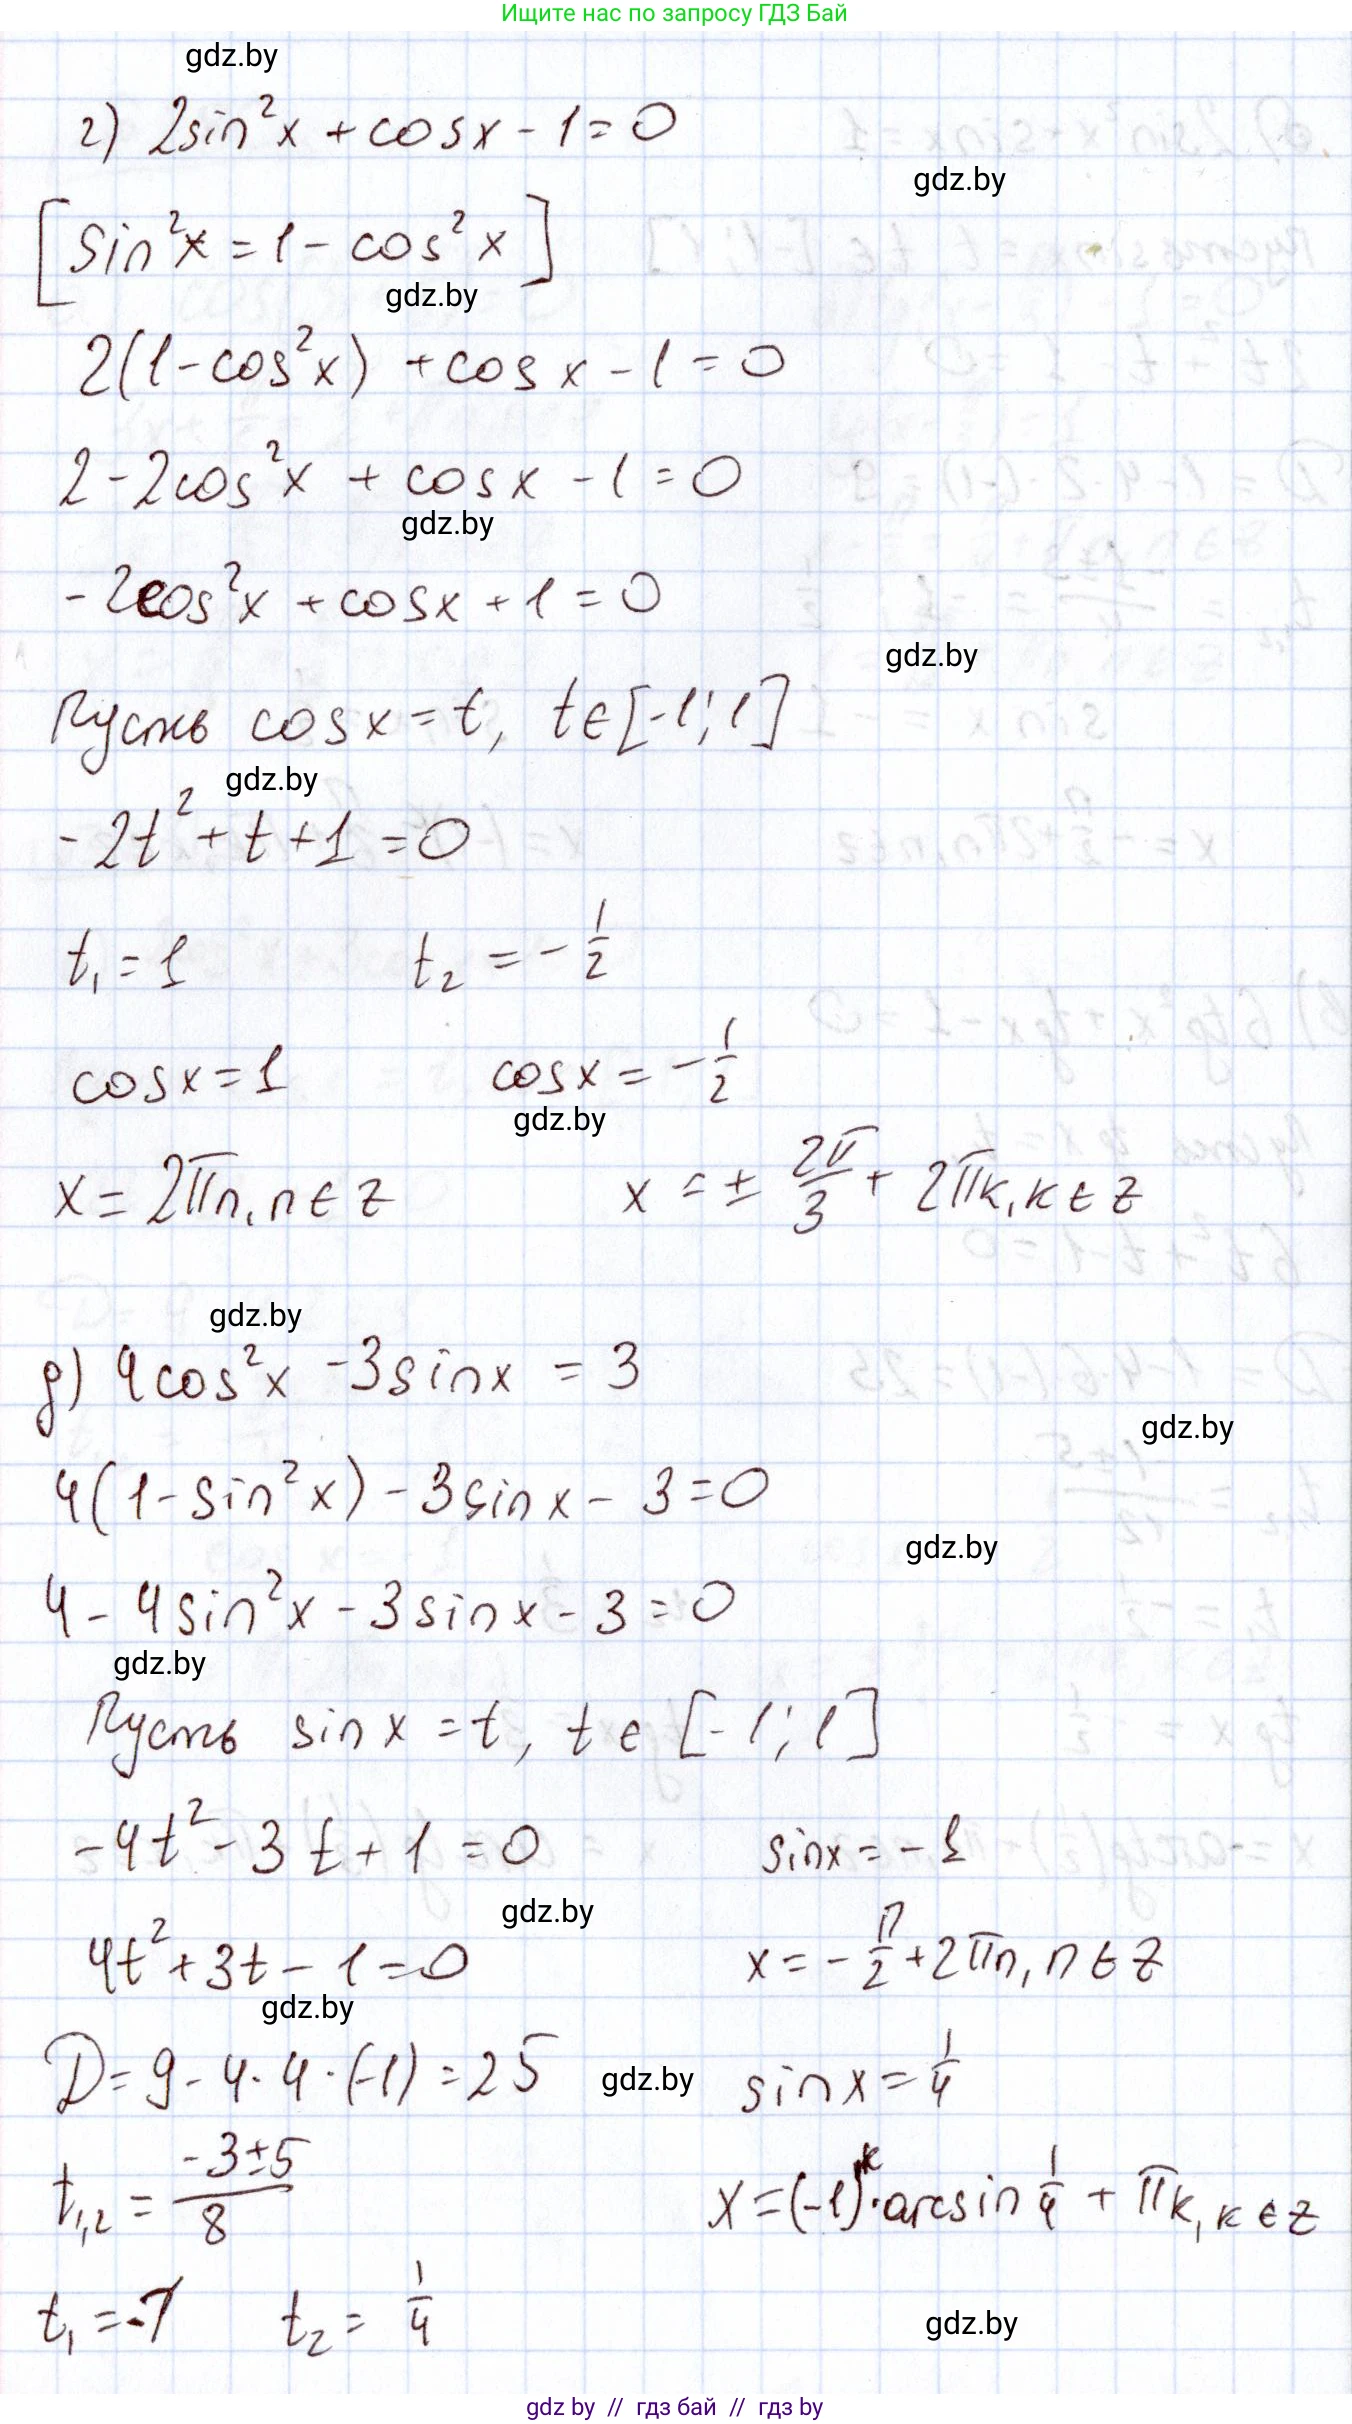 Ищите нас по запросу ГДЗ Бай
gdz.by
г) 2sin²x + cosx - 1 = 0
gdz.by
[sin²x = 1 - cos²x]
gdz.by
2(1 - cos²x) + cosx - 1 = 0
2 - 2cos²x + cosx - 1 = 0
gdz.by
-2cos²x + cosx + 1 = 0
gdz.by
Пусть cosx = t, t ∈ [-1; 1]
gdz.by
-2t² + t + 1 = 0
t₁ = 1 t₂ = -1/2
cosx = 1 cosx = -1/2
gdz.by
x = 2πn, n ∈ Z x = ± 2π/3 + 2πk, k ∈ Z
gdz.by
д) 4cos²x - 3sinx = 3
gdz.by
4(1 - sin²x) - 3sinx - 3 = 0
gdz.by
4 - 4sin²x - 3sinx - 3 = 0
gdz.by
Пусть sinx = t, t ∈ [-1; 1]
-4t² - 3t + 1 = 0 sinx = -1
gdz.by
4t² + 3t - 1 = 0 x = -π/2 + 2πn, n ∈ Z
gdz.by
D = 9 - 4·4·(-1) = 25 gdz.by sinx = 1/4
t₁,₂ = (-3±5)/8 x = (-1)ᵏ·arcsin 1/4 + πk, k ∈ Z
t₁ = -1 t₂ = 1/4 gdz.by
gdz by // гдз бай // гдз by